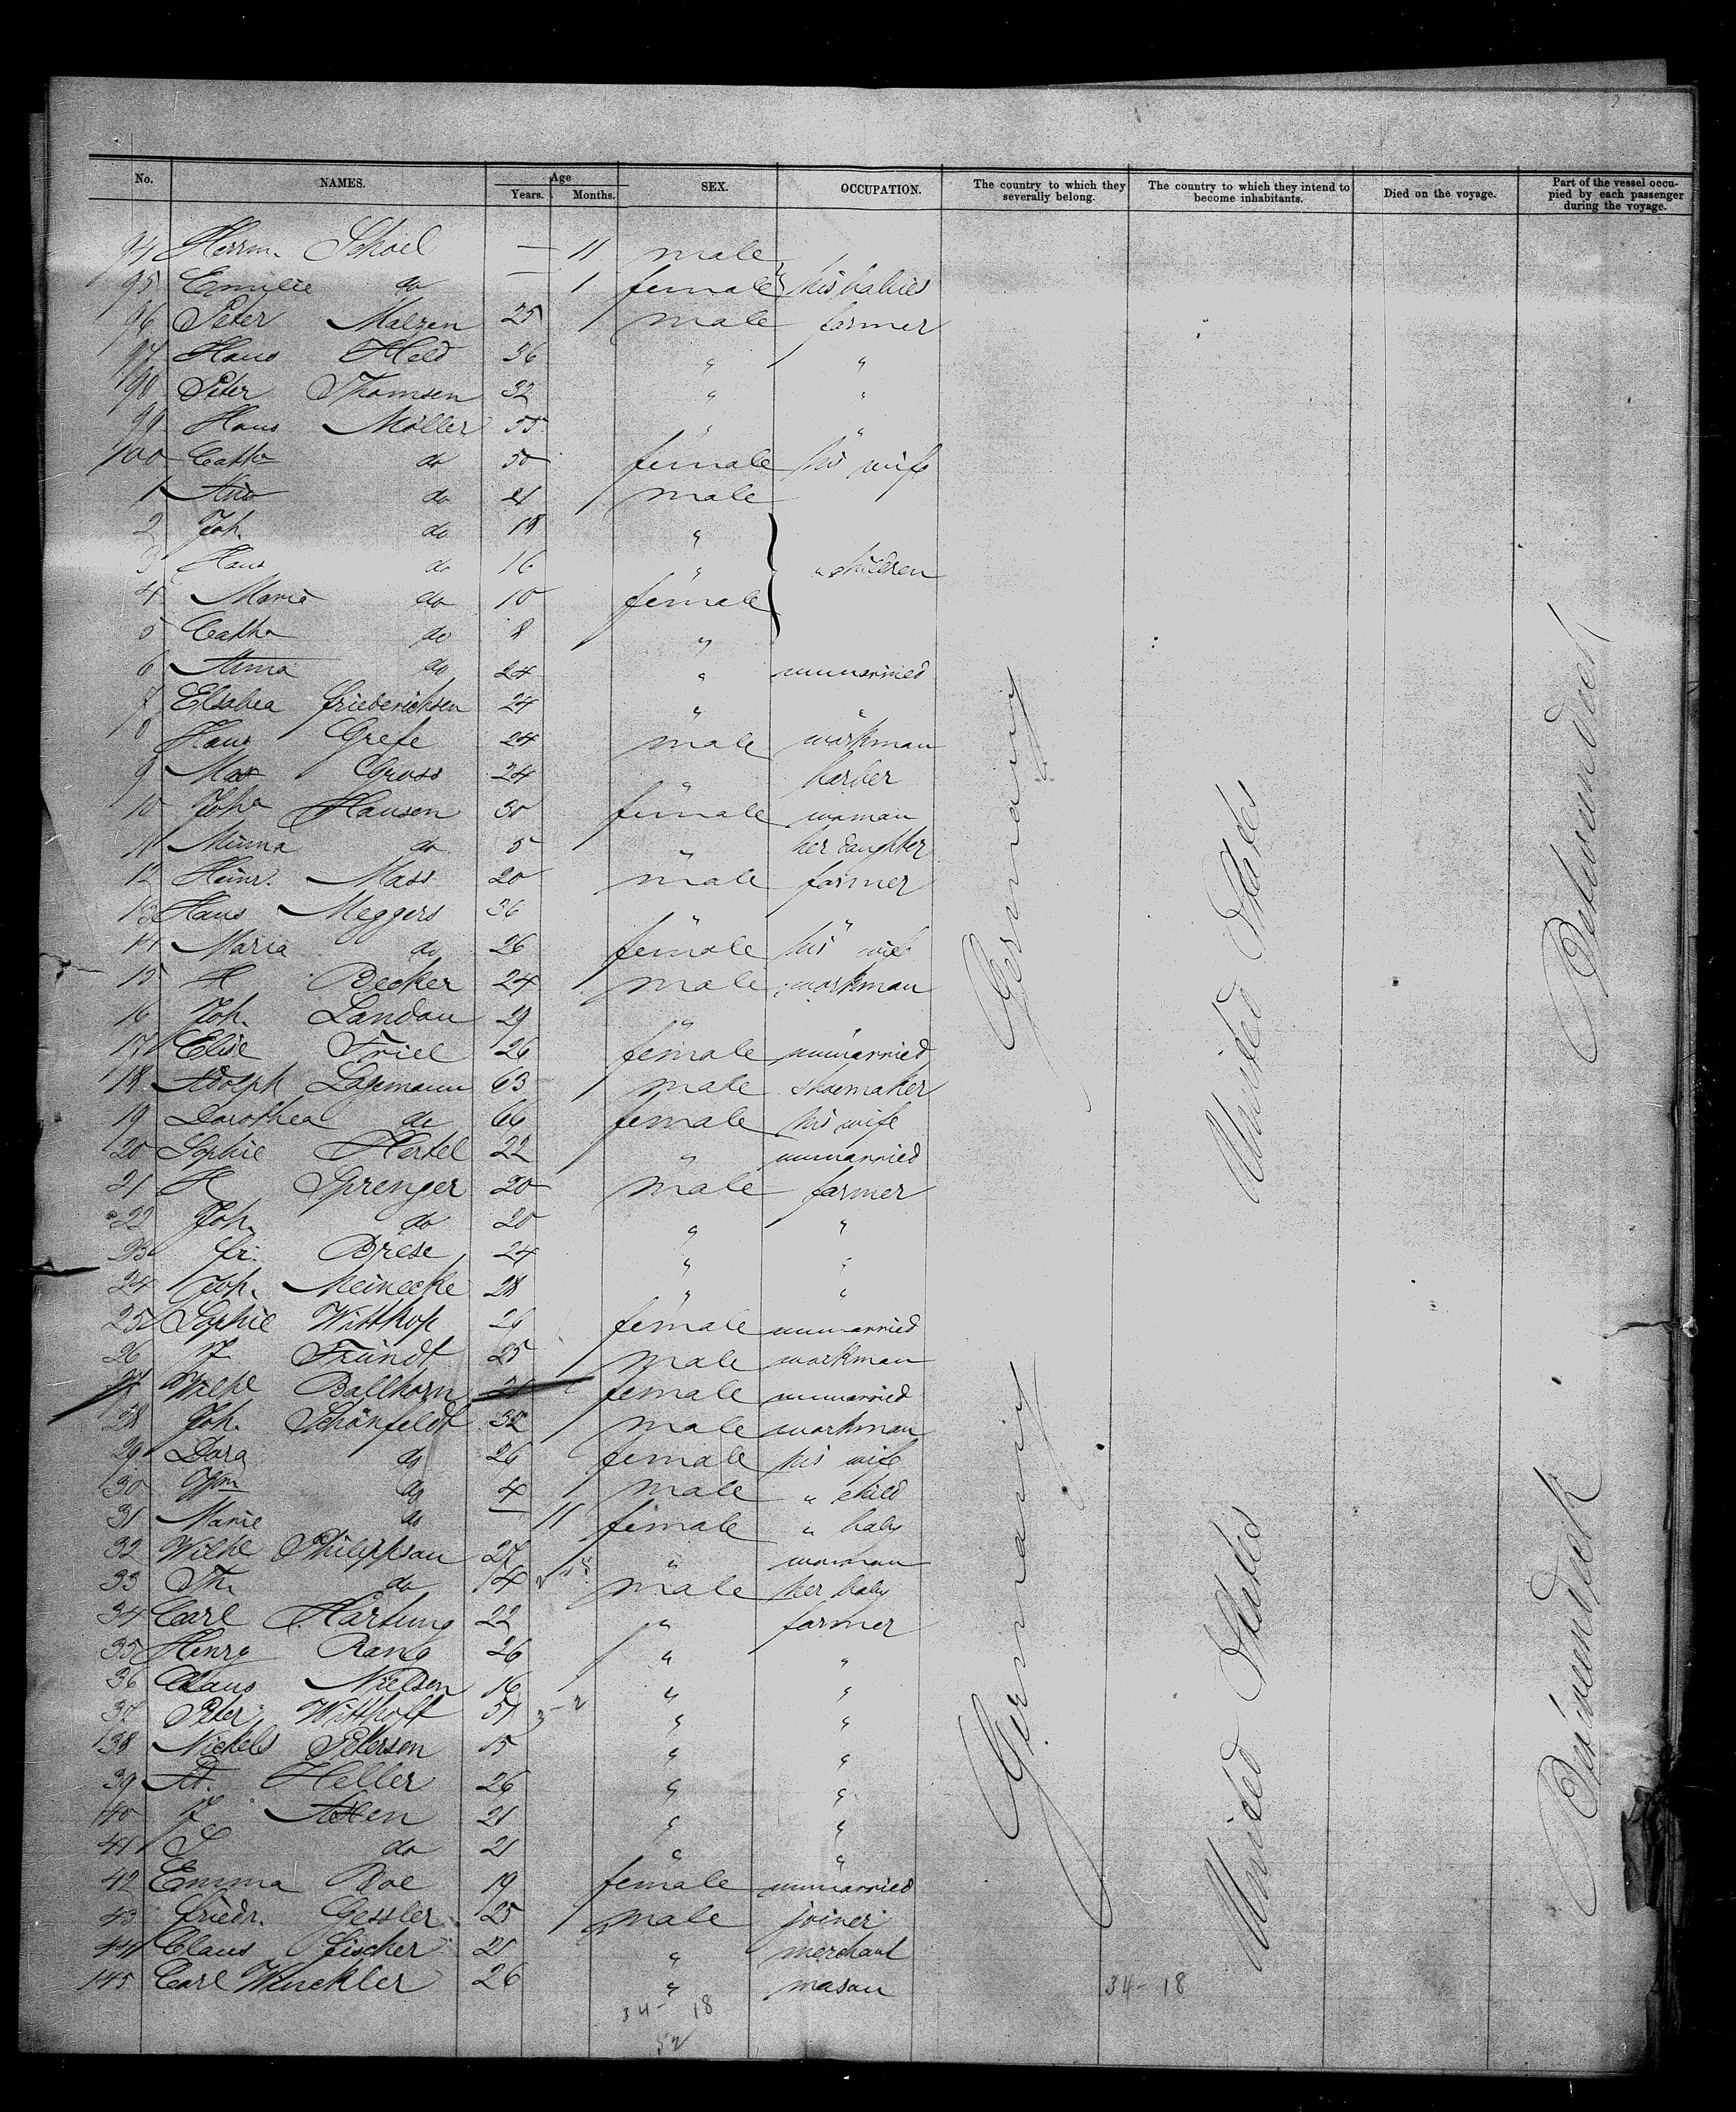 No. NAMES. Age Years. Months. SEX. OCCUPATION. The country to which they severally belong. The country to which they intend to become inhabitants. Died on the voyage. Part of the vessel occupied by each passenger during the voyage.
94 Herrm. Schoel — 11 male
95 Emilie do — 1 female } his babies
96 Peter Malzen 25 male farmer
97 Hans Held 36 " "
98 Peter Thomsen 32 " "
99 Hans Möller 55 " "
100 Catha do 50 female his wife
1 do 21 male
2 Joh. do 18 "
3 Hans do 16 " " children
4 Maria do 10 female
5 Catha do 8 "
6 Anna do 24 " unmarried
7 Elsabea Friederichsen 24 " "
8 Hans Grefe 24 male workman
9 Max Gross 24 " barber
10 Joha Hansen 30 female woman
11 Minna do 5 " her daughter
12 Heinr. Mass 20 male farmer
13 Hans Meggers 36 " "
14 Maria do 26 female his wife
15 H Becker 24 male workman
16 Joh. Landau 29 " "
17 Elise Friel 26 female unmarried
18 Adolph Lagemann 63 male shoemaker
19 Dorothea do 66 female his wife
20 Sophie Hertel 22 " unmarried
21 H Sprenger 20 male farmer
22 Joh. do 20 " "
23 Fr. Briese 24 " "
24 Joh. Meinecke 28 " "
25 Sophie Witthop 26 female unmarried
26 F Fründt 25 male workman
27 Wilhe Ballhorn 21 female unmarried
28 Joh. Schönfeldt 32 male workman
29 Dora do 26 female his wife
30 do 4 male " child
31 Marie do — 11 female " baby
32 Wilhe Philippsen 27 " woman
33 Th. do 14 male her baby
34 Carl Hartung 22 " farmer
35 Henry Rang 26 " "
36 Claus Nielsen 16 " "
37 Peter Witthoft 51 " "
138 Nickels Petersen 15 " "
39 A. Heller 26 " "
40 F 21 " "
41 S do 21 " "
42 Emma Boe 19 female unmarried
43 Friedr. Gessler 25 male joiner
44 Claus Fischer 21 " merchant
145 Carl Winckler 26 " mason
Germany
United States
Between deck
Germany
United States
Between deck
34 - 18
34 - 18
52